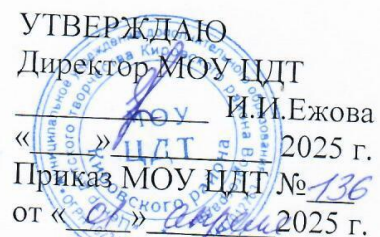 УТВЕРЖДАЮ
Директор МОУ ЦДТ
____________ И.И.Ежова
«____»____________ 2025 г.
Приказ МОУ ЦДТ № 136
от « 01 » апреля 2025 г.
МОУ
ЦДТ
Кировского района